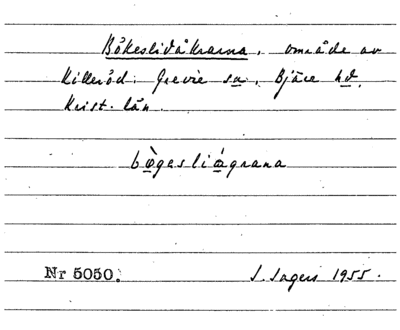 Bökeslidåkrarna, område av
Killeröd. Grevie sn, Bjäre hd.
Krist. län.
bø̀gesliágrana
Nr 5050. J. Sagers 1955.